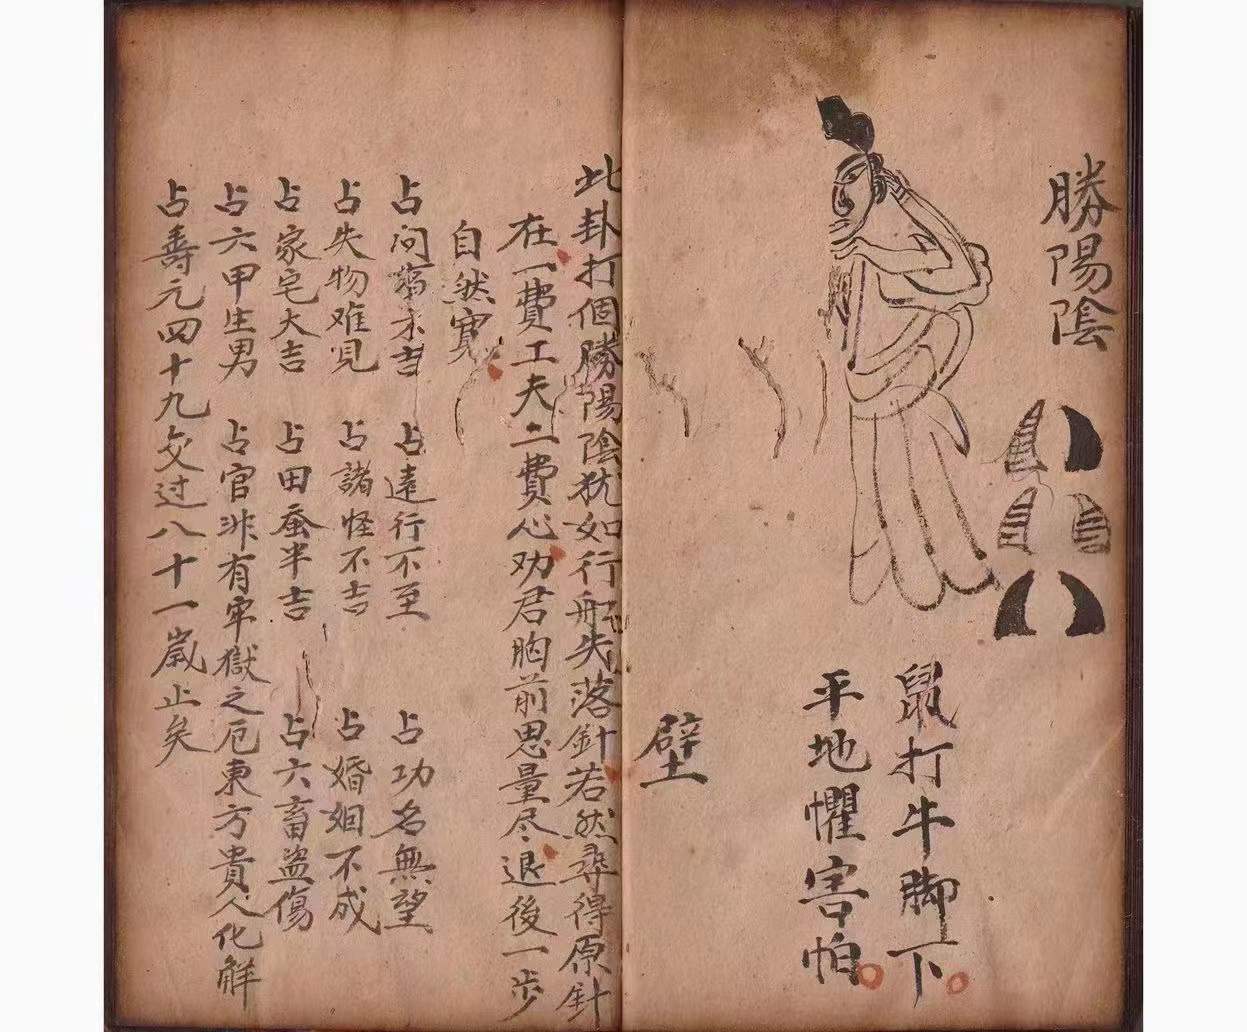 勝陽陰
鼠打牛脚下
平地懼害怕
壁
此卦打個勝陽陰犹如行船失落針若然尋得原針
在一費工夫二費心劝君胸前思量尽退後一步
自然寬
占問病不吉 占遠行不至 占功名無望
占失物难見 占諸怪不吉 占婚姻不成
占家宅大吉 占田蚕半吉 占六畜盜傷
占六甲生男 占官非有牢獄之厄東方貴人化解
占壽元四十九交过八十一歲止矣